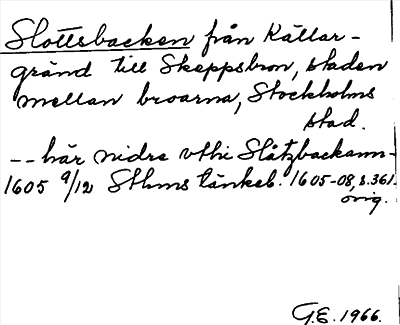 Slottsbacken från Källar-
gränd till Skeppsbron, staden
mellan broarna, Stockholms
stad.
-- här nidre vthi Slåtzbackann-
1605 9/12 Sthms tänkeb. 1605-08, s.361.
örig.
G.E. 1966.